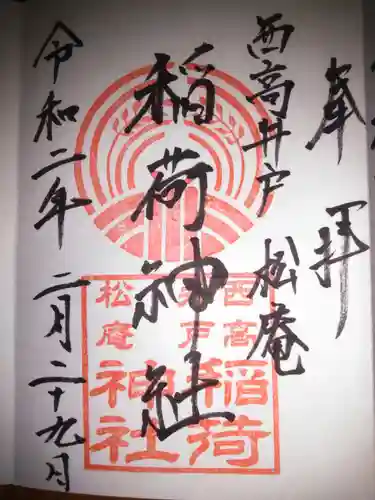 奉拝
西高井戸
松庵
稲荷神社
令和二年 二月二十九月
西高
井戸
松庵
稲荷
神社